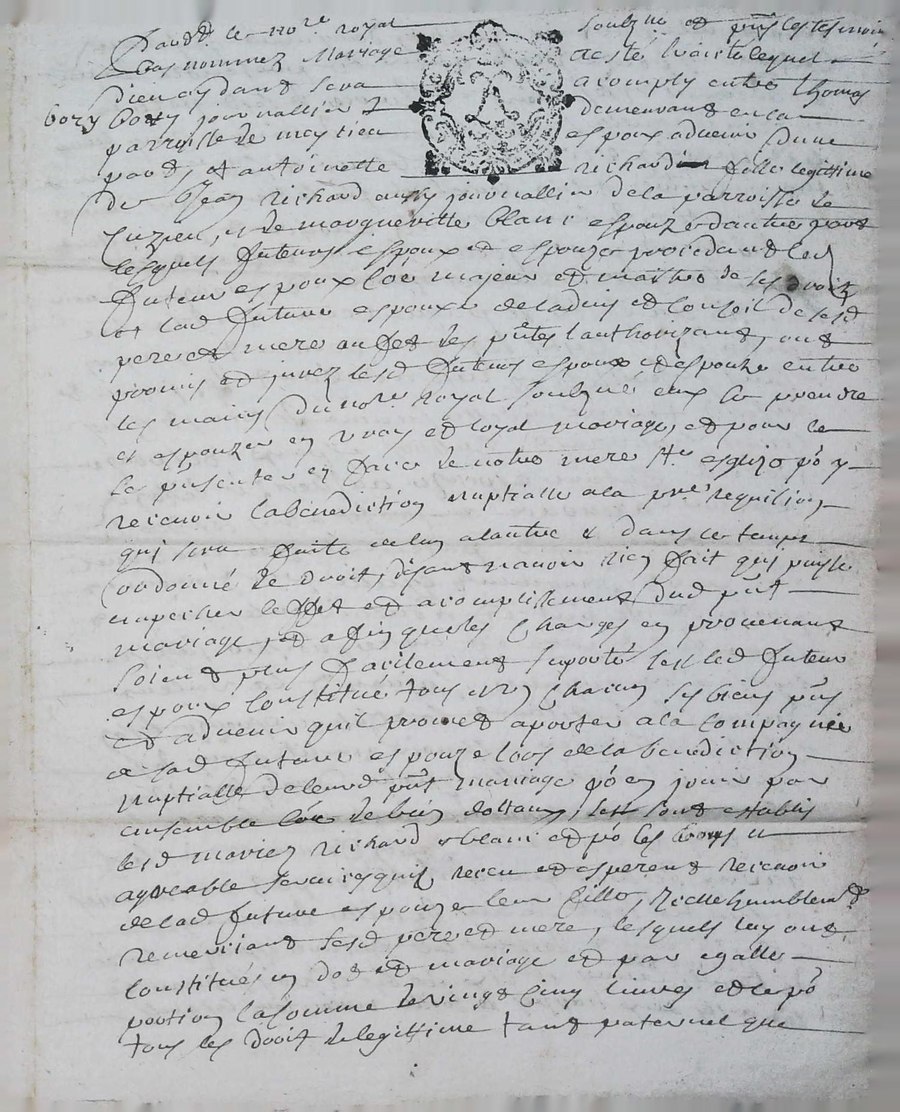 Pard.t le no.re royal soubzne et pñts les tesmoin
bas nommez Mariage a esté traité lequel
dieu aydant sera acomply entre thomas
bory bory journallier demeurant en la
parroisse de meyzieu espoux advenir d'une
part, et antoinette richard fille legittime
de Jean richard aussy journallier de la parroisse de
et de margueritte blanc espouze d'autre part
lesquels futurs espoux et espouze procedant led
futeur espoux comme majeur et maistre de ses droitz
et lad future espouze de ladvis et conseil de sesd
pere et mere au fet des pñtes l'authorizant, ont
promis et jurez lesd futurs espoux et espouze entre
les mains du not.re royal soubzne eux se prendre
et espouzer en vray et loyal mariage, et pour ce
se presenter en face de nostre mere s.te esglize po y
recevoir la benediction nuptialle a la pre requisition
qui sera faite de lun a lautre et dans le temps
ordonné de droit, disant navoir rien fait qui puisse
empecher leffet et acomplissement dud pñt
mariage, et afin que les charges en provenant
soient plus facilement suporté led futeur
espoux constitué tous un chacun ses biens pñts
et advenir quil promet aporter a la compagnie
de sad future espouze lors de la benediction
nuptialle de leurd pñt mariage po en jouir par
ensemble de bien dottaux, sont establis
lesd mariez richard et blanc et po les bons et
agreable services quilz receu et esperent recevoir
de lad future espouze leur fille, icelle humblem.t
remerciant sesd pere et mere, lesquels luy ont
constitués en dot et mariage et par egalle
portion la somme de vingt cinq livres et ce po
tous les droit de legittime tant paternel que